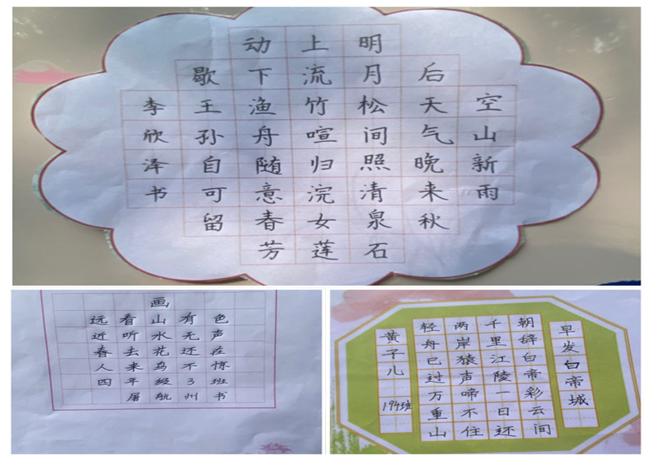 空山新雨
后天气晚来秋
明月松间照清泉石
上流竹喧归浣女莲
动下渔舟随意春芳
歇王孙自可留
李欣泽书
画
远看山有色
近听水无声
春去花还在
人来鸟不惊
四年级3班
屠航州书
早发白帝城
朝辞白帝彩云间
千里江陵一日还
两岸猿声啼不住
轻舟已过万重山
黄子儿 194班